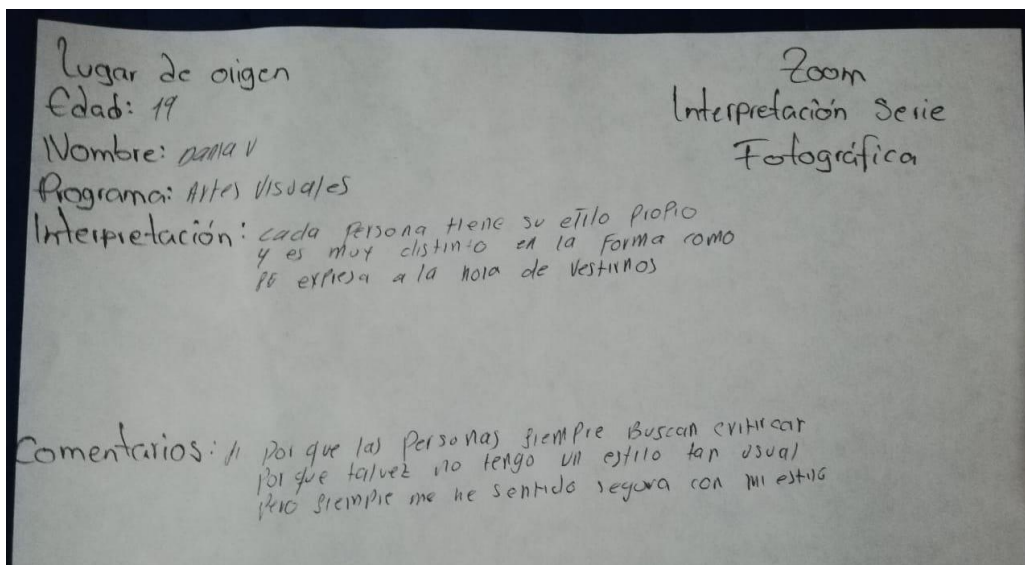 Lugar de oiigen
Edad: 19
Nombre: Dania V
Programa: Artes Visuales
Interpretación: cada persona tiene su etilo propio
y es muy distinto en la forma como
se expresa a la hora de vestirnos
Zoom
Interpretación Serie
Fotográfica
Comentarios: si por que las personas siempre Buscan criticar
por que talvez no tengo un estilo tan usual
pero siempre me he sentido segura con mi estilo